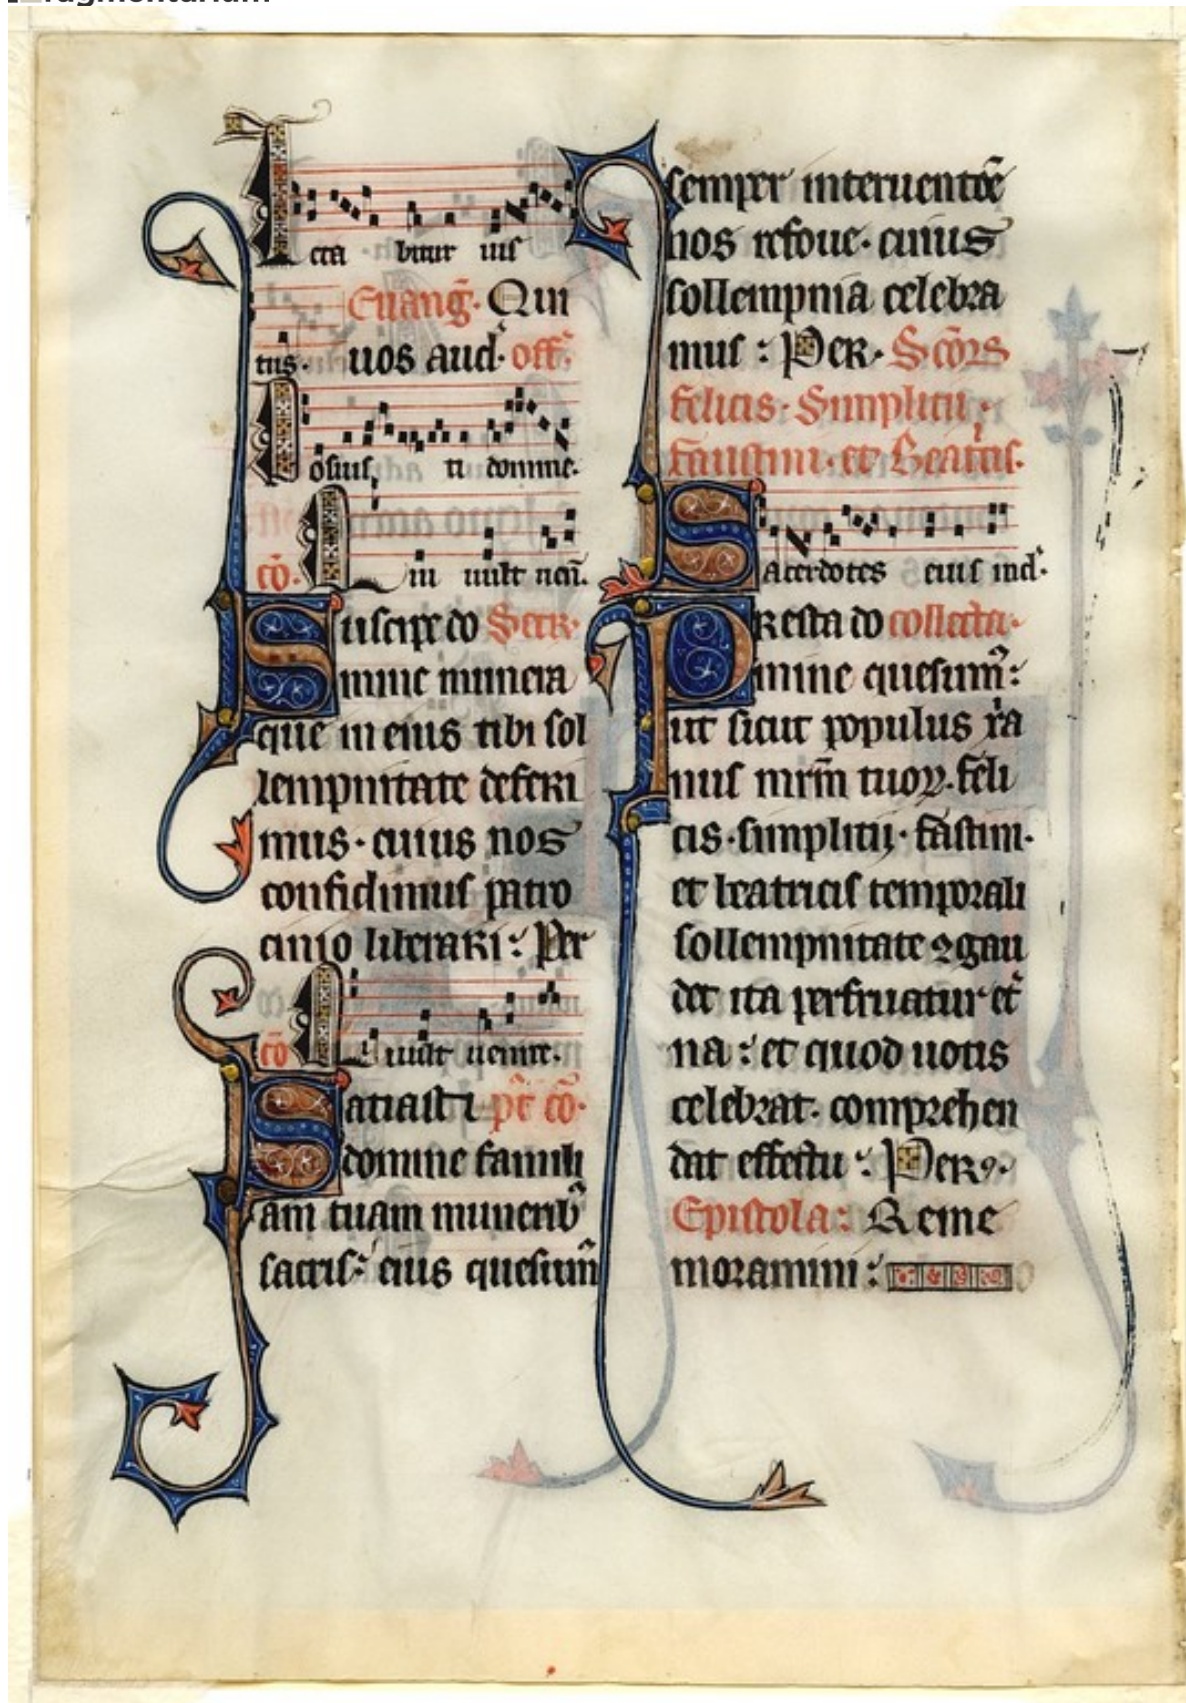 Fragmentarium
Leta bitur ius
Euang̅. Qui
tus. uos aud. off.
Posuis ti domine.
cō. Qui uult uen̄.
Suscipe do Secr.
mine munera
que in eius tibi sol
lempnitate deferi
mus. cuius nos
confidimus patro
cinio liberari: Per
cō Qui uult uenire.
Satiasti p̄t cō.
domine famili
am tuam munerib᷒
sacris: eius quesum̄
semper interuentōe
nos refoue. cuius
sollempnia celebra
mus: Per. Scōrs
felicis. Simplicii.
faustini. et Beat'cis.
Sacerdotes eius ind.
Presta do collecta.
mine quesum᷒:
ut sicut populus xp̄ia
nus mr̄m tuoꝝ. feli
cis. simplicij. fastini.
et beatricis temporali
sollempnitate ꝯgau
det ita perfruatur et̾
na: et quod uotis
celebrat. comprehen
dat effectu: Per ꝯ.
Epistola: Reme
moramini: